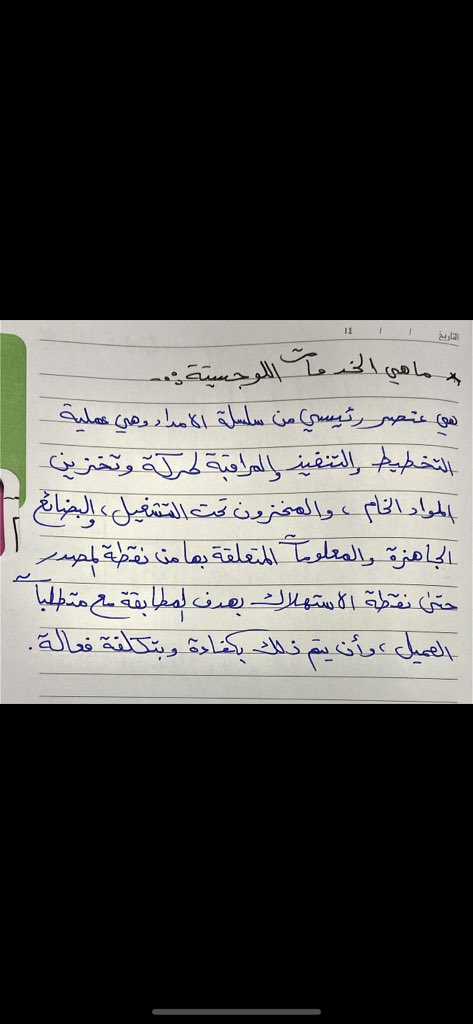 التاريخ / / ١٤
* ماهي الخدمات اللوجستية :..
هي عنصر رئيسي من سلسلة الامداد وهي عملية
التخطيط والتنفيذ والمراقبة لحركة وتخزين
المواد الخام ، والمخزون تحت التشغيل ، والبضائع
الجاهزة والمعلومات المتعلقة بها من نقطة المصدر
حتى نقطة الاستهلاك بهدف المطابقة مع متطلبات
العميل ، وأن يتم ذلك بكفاءة وبتكلفة فعالة .